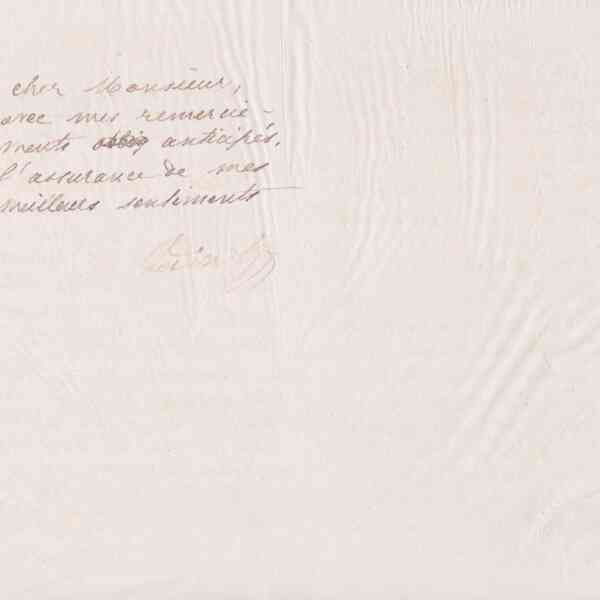 cher Monsieur,
avec mes remercie-
ments anticipés,
l'assurance de mes
meilleurs sentiments